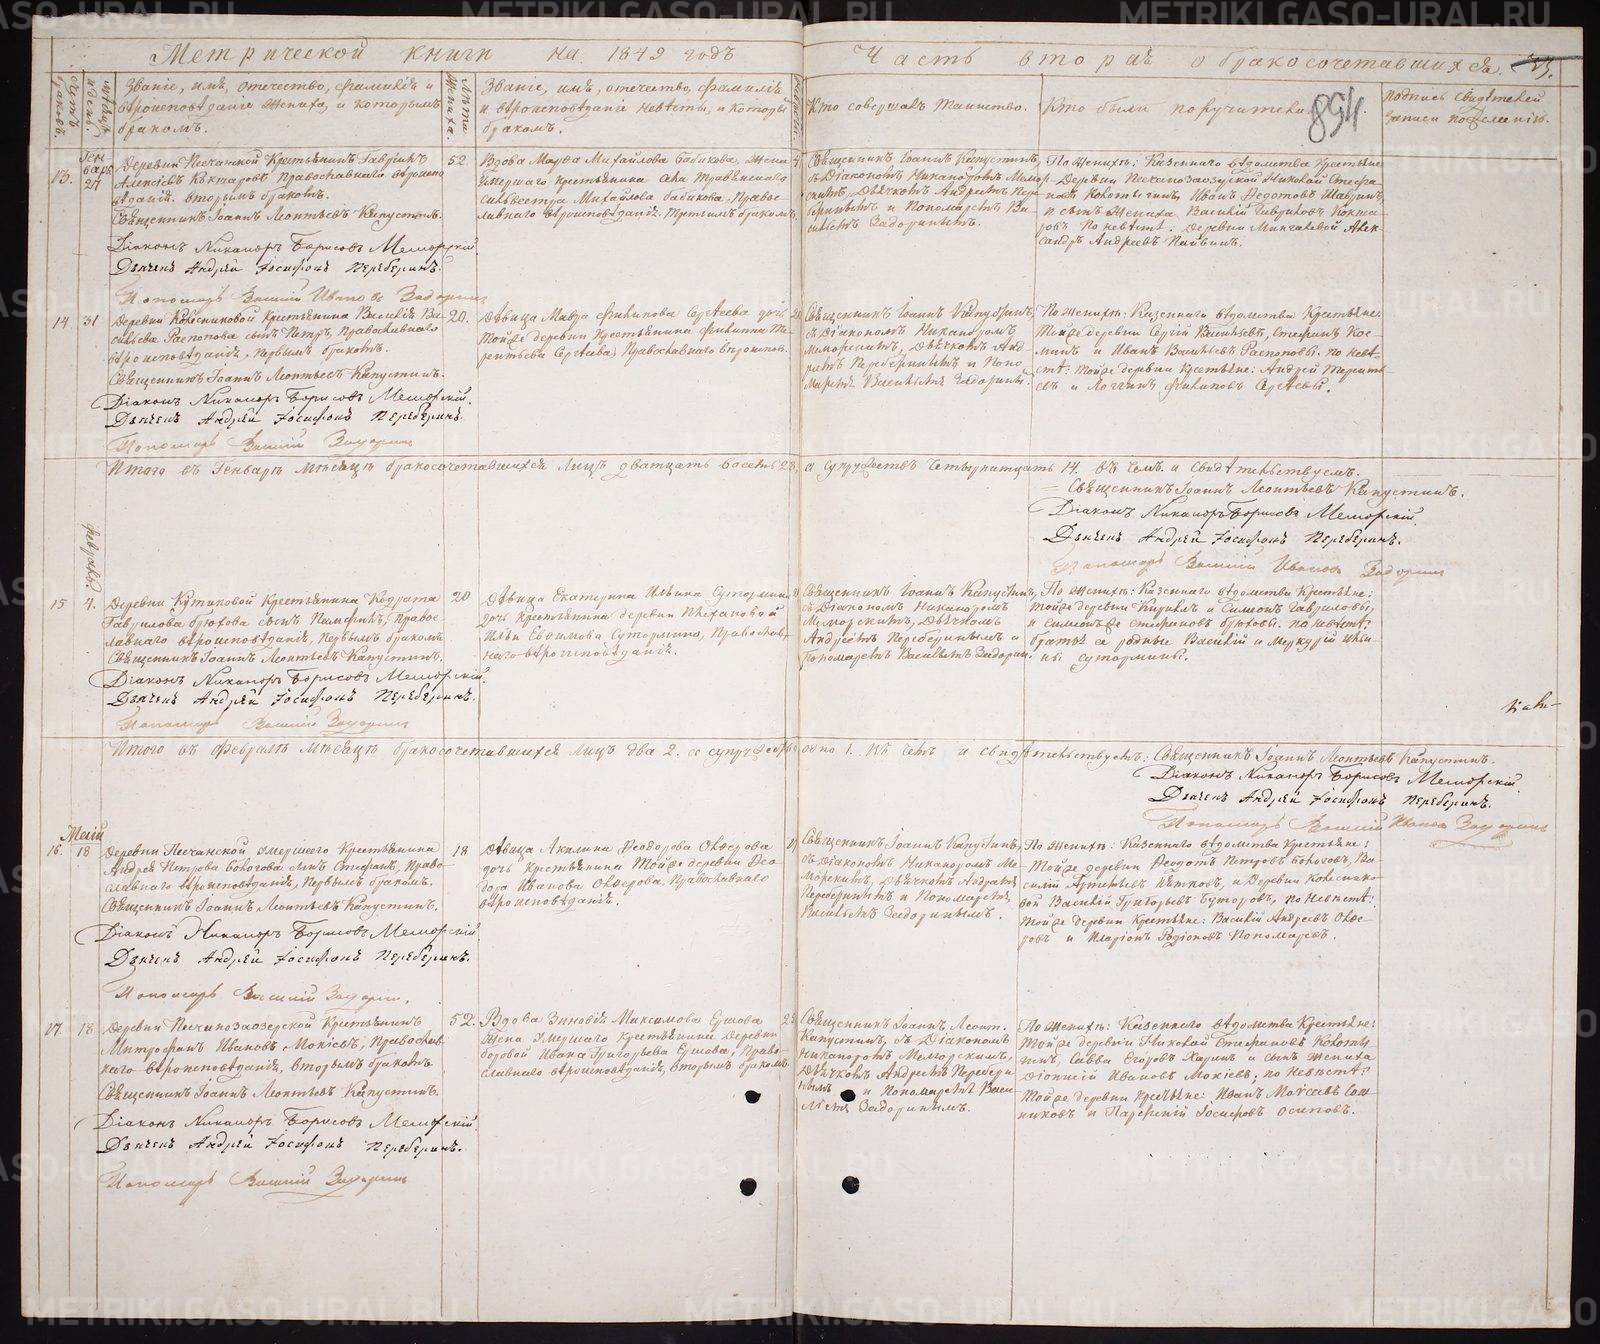 Метрической книги на 1849 годъ
Часть вторая о бракосочетавшихся.
894
Званіе, имя, отечество, фамилія и
вѣроисповѣданіе жениха, и которымъ
бракомъ.
Лѣта жениха.
Званіе, имя, отечество, фамилія
и вѣроисповѣданіе невѣсты, и которы
бракомъ.
Кто совершалъ таинство.
Кто были поручители
Подпись свидѣтелей
записи по желанію.
13.
27
Деревни Песчанской Крестьянинъ Гавріилъ
Алексѣевъ православнаго вѣроиспо
вѣданія. вторымъ бракомъ.
Священникъ Іоаннъ Леонтьевъ Капустинъ.
Діаконъ Никаноръ Борисовъ Меморскій.
Дьячекъ Андрей Іосифовъ Переберинъ.
Пономарь Василій Ивановъ Задоринъ
52
Вдова Марѳа Михайлова Бабикова, жена
умершаго крестьянина села Травянскаго
Сильвестра Михайлова Бабикова, Правос
лавнаго вѣроисповѣданія. Третьимъ бракомъ.
Священникъ Іоаннъ Капустинъ,
съ Діакономъ Никаноромъ Мемор
скимъ, Дьячкомъ Андреемъ Пере
беринымъ и Пономаремъ Ва
силіемъ Задоринымъ.
По женихѣ: Казеннаго вѣдомства Крестьяне
Деревни Песчанозаозерской Николай Стефа
Иванъ Ѳедотовъ Шавринъ,
и сынъ жениха Василій Гавриловъ
По невѣстѣ: Деревни Алек
сандръ Андреевъ
14
31
Деревни Колесниковой Крестьянина Василія Ва
сильева Распопова сынъ Петръ, Православнаго
вѣроисповѣданія, Первымъ бракомъ.
Священникъ Іоаннъ Леонтьевъ Капустинъ.
Діаконъ Никаноръ Борисовъ Меморскій.
Дьячекъ Андрей Іосифовъ Переберинъ.
Пономарь Василій Задоринъ
20.
Дѣвица Марѳа Филипова Сергѣева дочь
Тойже деревни Крестьянина Филиппа Те
рентьева Сергѣева, Православнаго вѣроиспов.
20
Священникъ Іоаннъ Капустинъ,
съ Діакономъ Никаноромъ
Меморскимъ, Дьячкомъ Анд
реемъ Переберинымъ и Поно
маремъ Василіемъ Задорин
По женихѣ: Казеннаго вѣдомства Крестьяне:
Тойже деревни Сергій Васильевъ, Стефанъ Кос
минъ и Иванъ Васильевъ Распоповы. по невѣ
стѣ: тойже деревни Крестьяне: Андрей Теренть
евъ и Логгинъ Филиповъ Сергѣевы.
Итого въ Генварѣ мѣсяцѣ бракосочетавшихся лицъ дватцать восемь 28, а супружествъ четырнатцать 14. въ чемъ и свидѣтельствуемъ.
Священникъ Іоаннъ Леонтьевъ Капустинъ.
Діаконъ Никаноръ Борисовъ Меморскій.
Дьячекъ Андрей Іосифовъ Переберинъ.
Пономарь Василій Ивановъ Задоринъ
Февраля.
15
4.
Деревни Крестьянина Кодрата
Гаврилова Брюхова сынъ Памфилъ, Правос
лавнаго вѣроисповѣданія, Первымъ бракомъ.
Священникъ Іоаннъ Леонтьевъ Капустинъ.
Діаконъ Никаноръ Борисовъ Меморскій.
Дьячекъ Андрей Іосифовъ Переберинъ.
Пономарь Василій Задоринъ
20
Дѣвица Екатерина Ильина Сутормин
дочь Крестьянина деревни Плехановой
Ильи Евфимова Сутормина, Православ
наго вѣроисповѣданія.
Священникъ Іоаннъ Капустинъ,
съ Діакономъ Никаноромъ
Меморскимъ, Дьячкомъ
Андреемъ Переберинымъ и
Пономаремъ Василіемъ Задорин.
По женихѣ: Казеннаго вѣдомства Крестьяне:
тойже деревни Кириллъ и Симеонъ Гавриловы,
и Симеонъ Стефановъ Брюховы. по невѣстѣ:
братья ея родные Василій и Меркурій Ильи
ны Сутормины.
Итого въ Февралѣ мѣсяцѣ бракосочетавшихся лицъ два 2. а супружество одно 1. Въ чемъ и свидѣтельствуетъ: Священникъ Іоаннъ Леонтьевъ Капустинъ.
Діаконъ Никаноръ Борисовъ Меморскій.
Дьячекъ Андрей Іосифовъ Переберинъ.
Пономарь Василій Иванов Задоринъ
Маія
16.
18
Деревни Песчанской умершаго Крестьянина
Андрея Петрова Бологова сынъ Стефанъ, Право
славнаго вѣроисповѣданія, Первымъ бракомъ.
Священникъ Іоаннъ Леонтьевъ Капустинъ.
Діаконъ Никаноръ Борисовъ Меморскій.
Дьячекъ Андрей Іосифовъ Переберинъ.
Пономарь Василій Задорин.
18
Дѣвица Акилина Ѳеодорова Олферова
дочь Крестьянина Тойже деревни Ѳео
дора Иванова Олферова, Православнаго
вѣроисповѣданія.
Священникъ Іоаннъ Капустинъ,
съ Діакономъ Никаноромъ Ме
морскимъ, Дьячкомъ Андреемъ
Переберинымъ и Пономаремъ
Василіемъ Задоринымъ.
По женихѣ: Казеннаго вѣдомства Крестьяне:
Тойже деревни Ѳеодотъ Петровъ Бологовъ, Ва
силій и Деревни Колеснико
вой Василій Григорьевъ Буторовъ, по Невѣстѣ:
Тойже деревни Крестьяне: Василій Андреевъ Олфе
ровъ и Иларіонъ Родіоновъ Пономаревъ.
17.
18.
Деревни Песчанозаозерской Крестьянинъ
Митрофанъ Ивановъ Мокіевъ, Православ
наго вѣроисповѣданія, вторымъ бракомъ
Священникъ Іоаннъ Леонтьевъ Капустинъ.
Діаконъ Никаноръ Борисовъ Меморскій.
Дьячекъ Андрей Іосифовъ Переберинъ.
Пономарь Василій Задоринъ
52.
Вдова Зиновія Максимова Ершова
жена умершаго Крестьянина деревни
Боровой Ивана Григорьева Ершова, Право
славнаго вѣроисповѣданія, вторымъ бракомъ.
Священникъ Іоаннъ Леонт.
Капустинъ, съ Діакономъ
Никаноромъ Меморскимъ,
Дьячкомъ Андреемъ Перебери
нымъ и Пономаремъ Васи
ліемъ Задоринымъ.
По женихѣ: Казеннаго вѣдомства Крестьяне:
Тойже деревни Николай Стефановъ
Савва Егоровъ и сынъ жениха
Діонисій Ивановъ Мокіевъ; по Невѣстѣ:
Тойже деревни Крестьяне: Иванъ Моисеевъ
и Парѳеній Іосифовъ Осиповъ.
METRIKI.GASO-URAL.RU